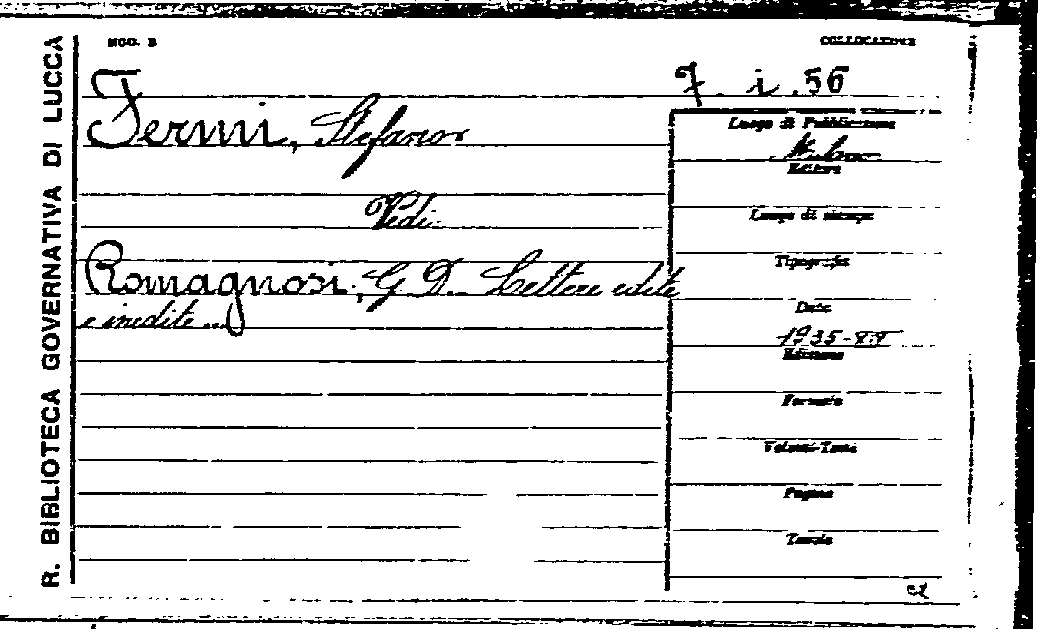 R. BIBLIOTECA GOVERNATIVA DI LUCCA
MOD. B
COLLOCAZIONE
7. i. 56
Fermi, Stefano
Vedi
Romagnosi, G D. Lettere edite
e inedite ...
Luogo di Pubblicazione
Milano
Editore
Luogo di stampa
Tipografia
Data
1935-XIV
Edizione
Formato
Volumi-Tomi
Pagine
Tavole